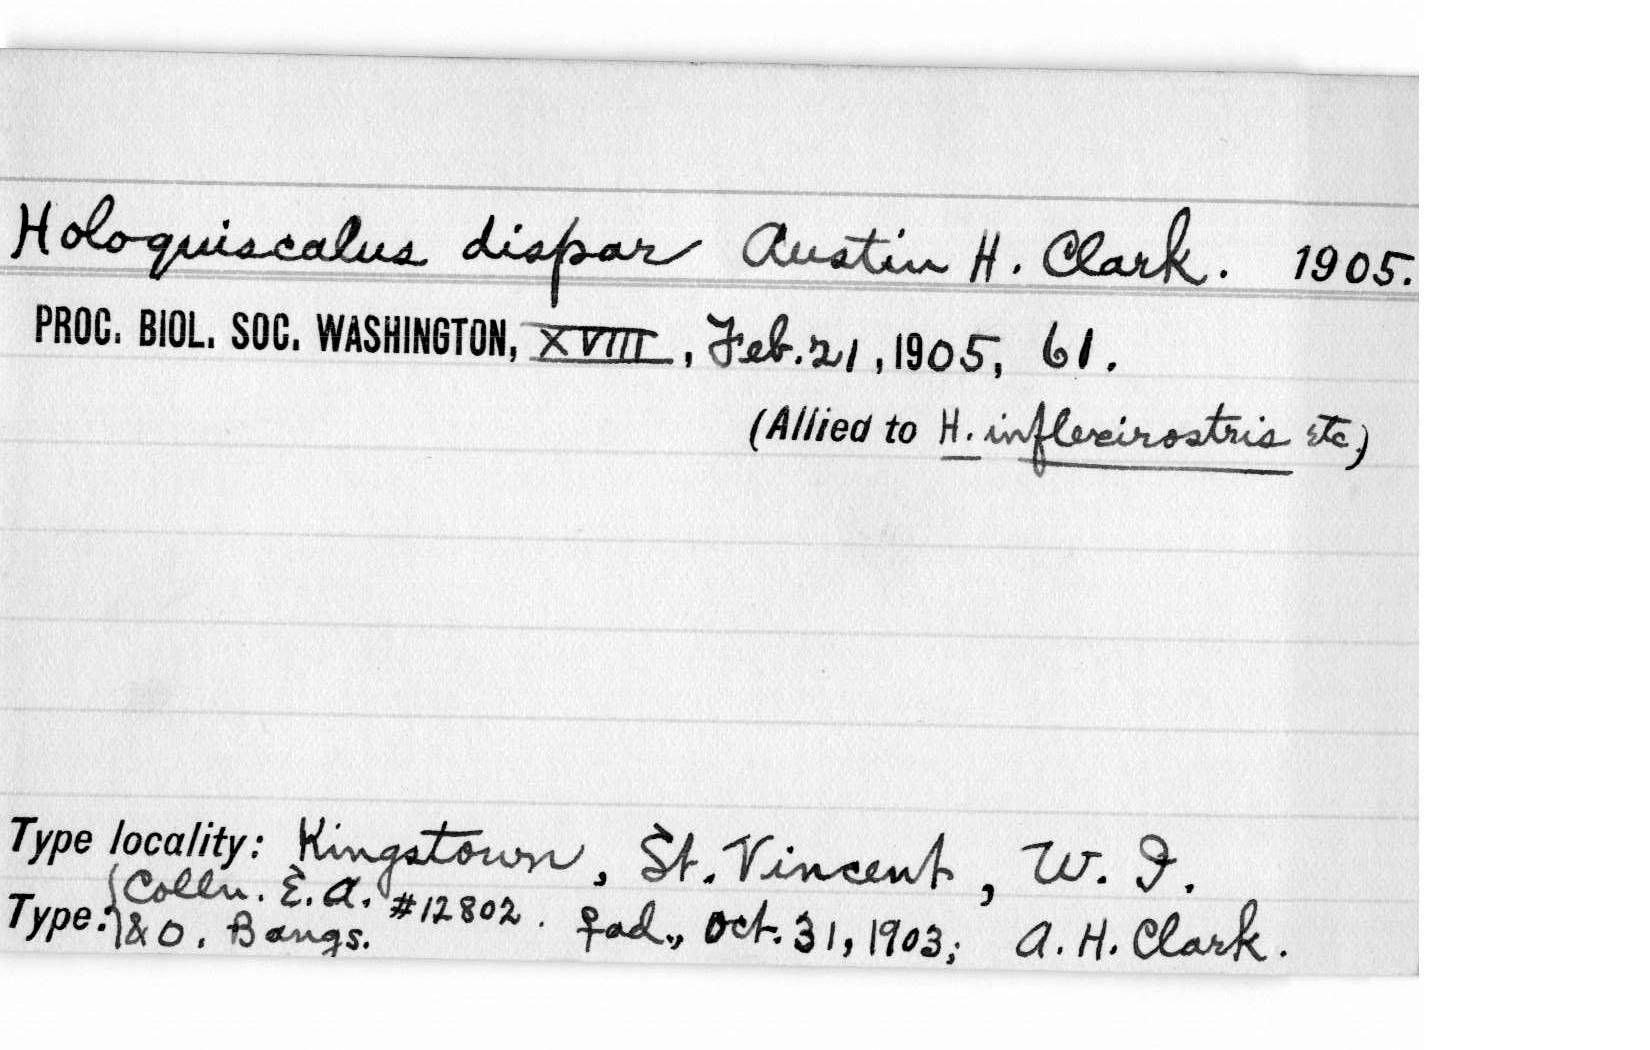 Holoquiscalus dispar Austin H. Clark. 1905.
PROC. BIOL. SOC. WASHINGTON, XVIII, Feb. 21, 1905, 61.
(Allied to H. inflexirostris etc.)
Type locality: Kingstown, St. Vincent, W. I.
Type: {Colln. E. A. & O. Bangs. #12802. ♀ ad., Oct. 31, 1903; A. H. Clark.